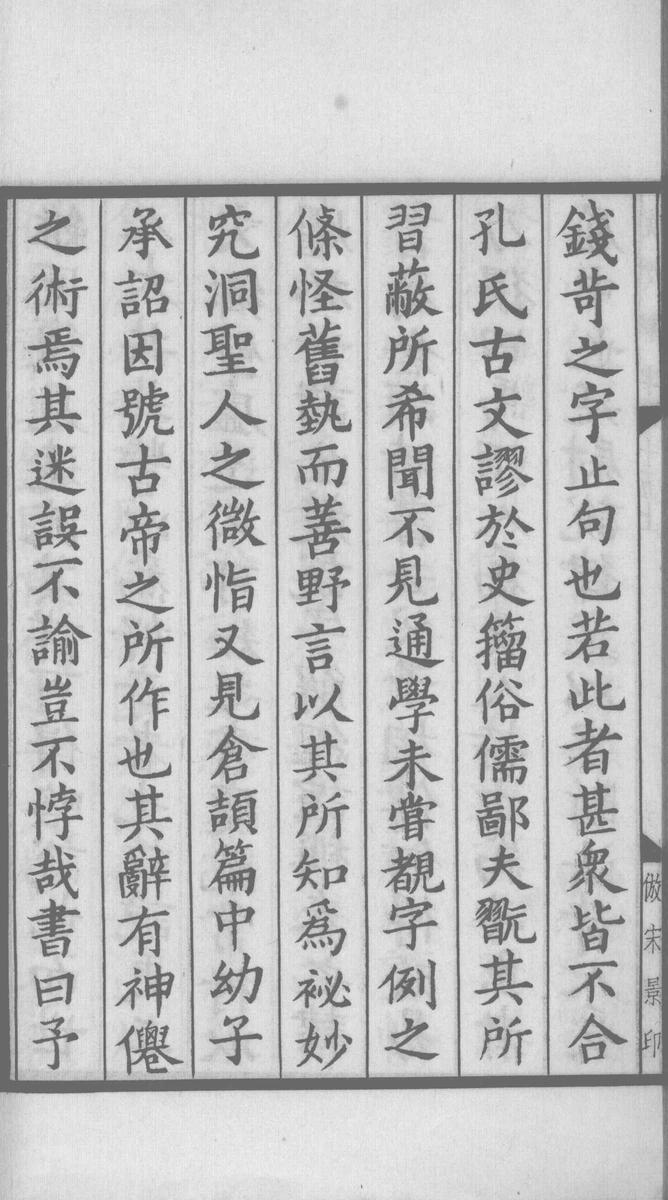 倣宋景印
錢苛之字止句也若此者甚衆皆不合
孔氏古文謬於史籀俗儒鄙夫翫其所
習蔽所希聞不見通學未嘗覩字例之
條怪舊埶而善野言以其所知爲祕妙
究洞聖人之微恉又見倉頡篇中幼子
承詔因號古帝之所作也其辭有神僊
之術焉其迷誤不諭豈不悖哉書曰予